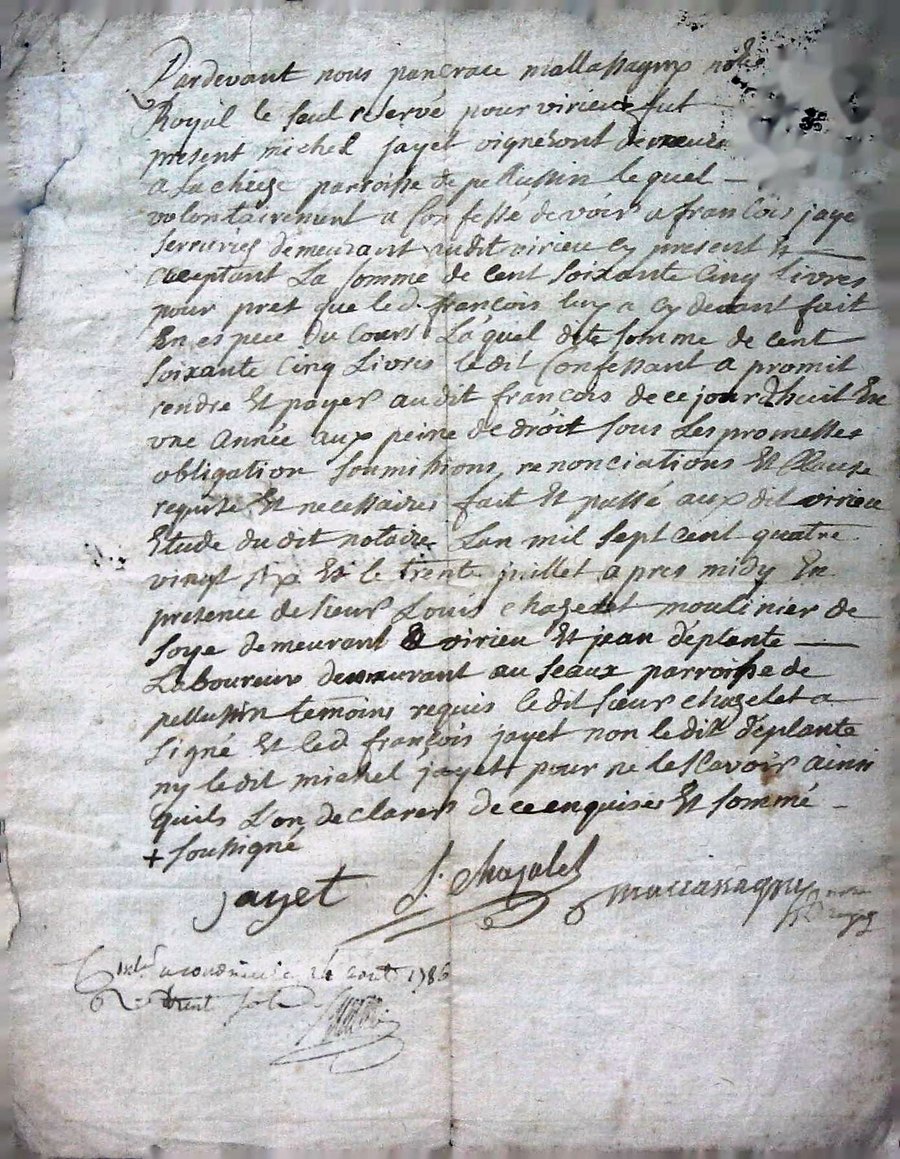 Pardevant nous pancrace mallassagny not
Royal le seul réservé pour virieu fut
present michel jayet vigneront demeura
a La chieze parroisse de pellussin lequel —
volontairement a Confessé devoir a françois jaye
serrurier demeurant audit virieu cy present Et —
acceptant La somme de cent soixante cinq livres
pour pret que led. françois luy a cy devant fait
En espece du cours Laquel dite somme de cent
soixante cinq Livres ledit Confessant a promit
rendre Et payer audit françois de ce jourdhuit En
une Année aux peine de droit sous Les promesses
obligation soumissions, renonciations Et Clause
requise Et necessaires fait Et passé aux dit virieu
Etude du dit notaire Lan mil sept cent quatre
vingt six Et le trente juillet apres midy En
presence de sieur Louis chazelet moulinier de
soye demeurant a virieu Et jean déplante —
Laboureur demeurant au seaux parroisse de
pellussin temoins requis ledit sieur chazelet a
signé Et led. françois jayet non ledit déplante
ny ledit michel jayet pour ne le scavoir ainsi
quils L'on declarer de ce enquises Et sommé —
+ soussigné
jayet L. Chazalet mallassagny
a condrieu le août 1786